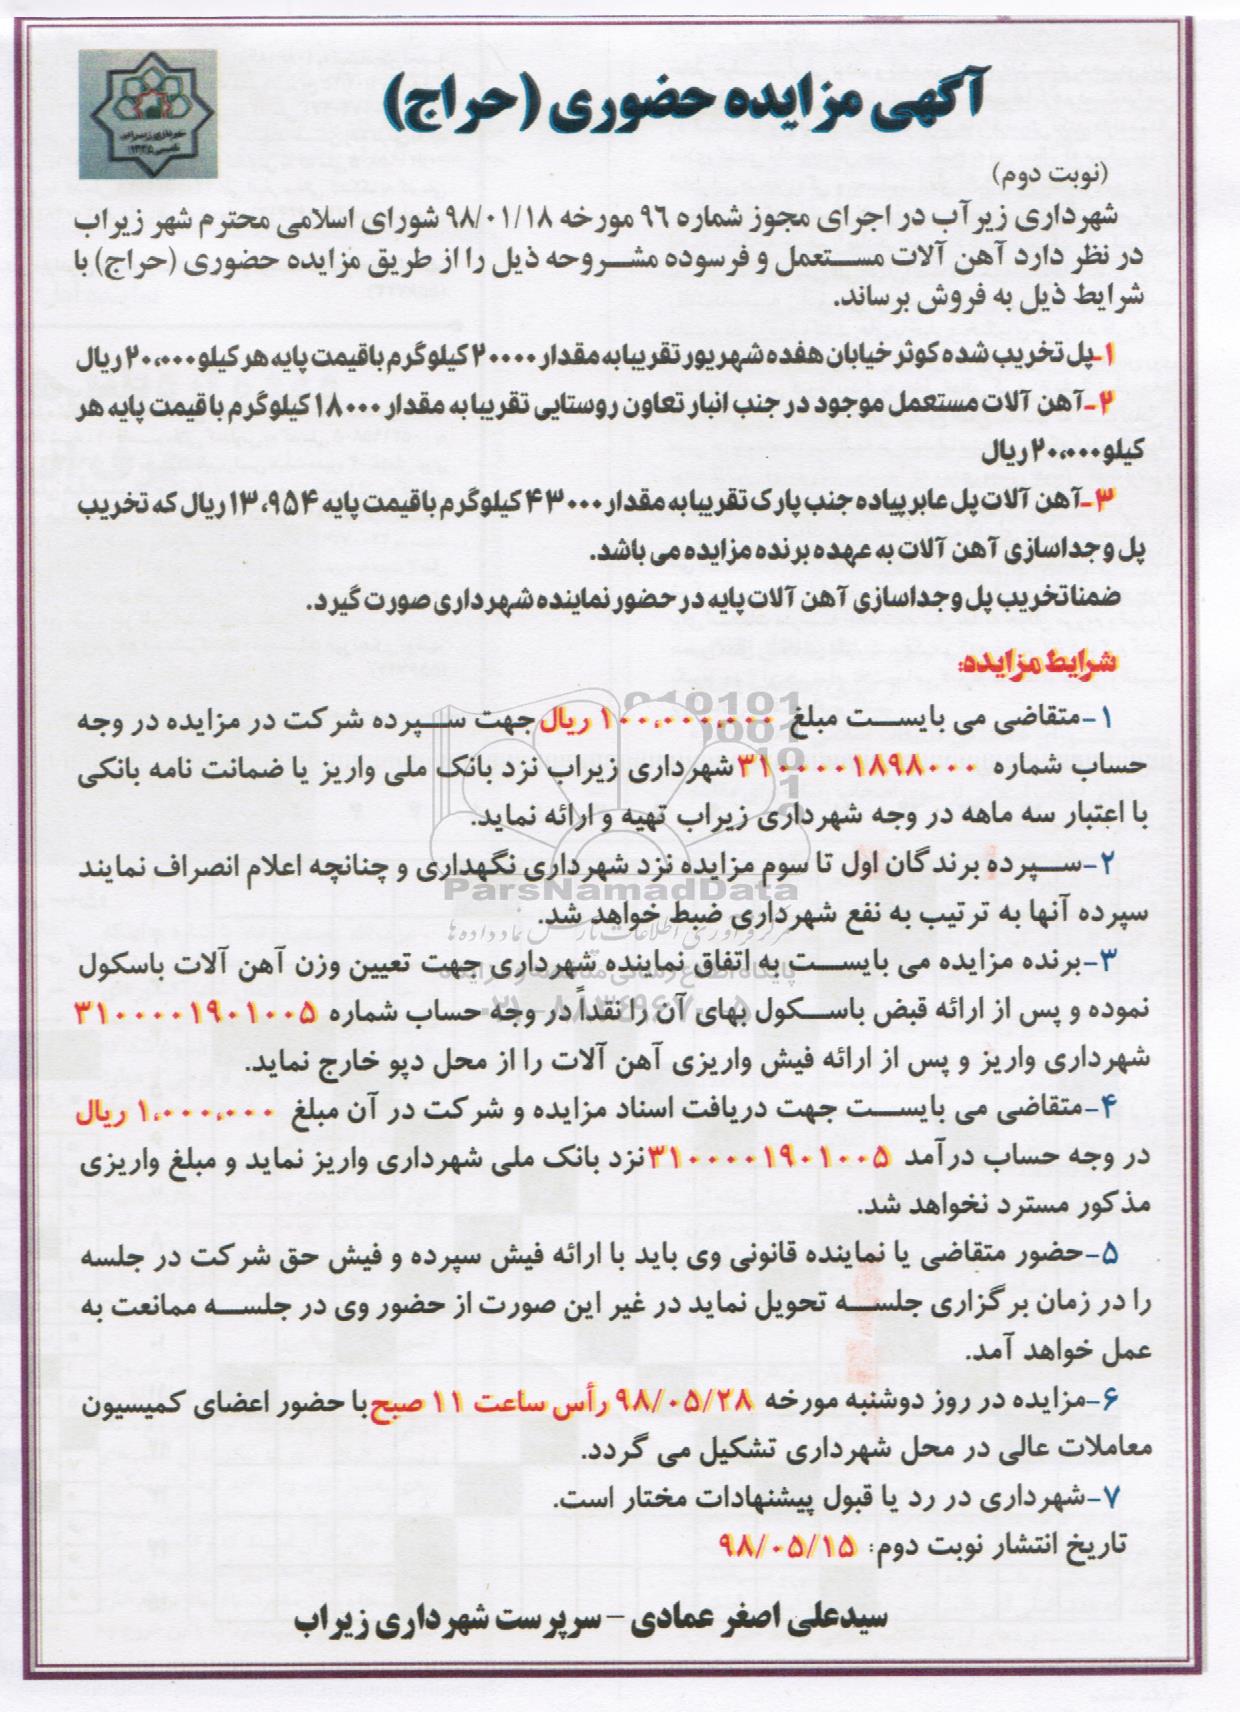 آگهی مزایده حضوری (حراج)
شهرداری زیرآب
تاسیس ۱۳۳۵
(نوبت دوم)
شهرداری زیرآب در اجرای مجوز شماره ۹۶ مورخه ۹۸/۰۱/۱۸ شورای اسلامی محترم شهر زیراب
در نظر دارد آهن آلات مستعمل و فرسوده مشروحه ذیل را از طریق مزایده حضوری (حراج) با
شرایط ذیل به فروش برساند.
۱-پل تخریب شده کوثر خیابان هفده شهریور تقریبا به مقدار ۲۰۰۰۰ کیلوگرم با قیمت پایه هر کیلو ۲۰,۰۰۰ ریال
۲-آهن آلات مستعمل موجود در جنب انبار تعاون روستایی تقریبا به مقدار ۱۸۰۰۰ کیلوگرم با قیمت پایه هر
کیلو ۲۰,۰۰۰ ریال
۳-آهن آلات پل عابر پیاده جنب پارک تقریبا به مقدار ۴۳۰۰۰ کیلوگرم با قیمت پایه ۱۳,۹۵۴ ریال که تخریب
پل و جداسازی آهن آلات به عهده برنده مزایده می باشد.
ضمنا تخریب پل و جداسازی آهن آلات پایه در حضور نماینده شهرداری صورت گیرد.
شرایط مزایده:
۱-متقاضی می بایست مبلغ ۱۰۰,۰۰۰,۰۰۰ ریال جهت سپرده شرکت در مزایده در وجه
حساب شماره ۳۱۰۰۰۰۱۸۹۸۰۰۰ شهرداری زیراب نزد بانک ملی واریز یا ضمانت نامه بانکی
با اعتبار سه ماهه در وجه شهرداری زیراب تهیه و ارائه نماید.
۲-سپرده برندگان اول تا سوم مزایده نزد شهرداری نگهداری و چنانچه اعلام انصراف نمایند
سپرده آنها به ترتیب به نفع شهرداری ضبط خواهد شد.
۳-برنده مزایده می بایست به اتفاق نماینده شهرداری جهت تعیین وزن آهن آلات باسکول
نموده و پس از ارائه قبض باسکول بهای آن را نقداً در وجه حساب شماره ۳۱۰۰۰۰۱۹۰۱۰۰۵
شهرداری واریز و پس از ارائه فیش واریزی آهن آلات را از محل دپو خارج نماید.
۴-متقاضی می بایست جهت دریافت اسناد مزایده و شرکت در آن مبلغ ۱,۰۰۰,۰۰۰ ریال
در وجه حساب درآمد ۳۱۰۰۰۰۱۹۰۱۰۰۵ نزد بانک ملی شهرداری واریز نماید و مبلغ واریزی
مذکور مسترد نخواهد شد.
۵-حضور متقاضی یا نماینده قانونی وی باید با ارائه فیش سپرده و فیش حق شرکت در جلسه
را در زمان برگزاری جلسه تحویل نماید در غیر این صورت از حضور وی در جلسه ممانعت به
عمل خواهد آمد.
۶-مزایده در روز دوشنبه مورخه ۹۸/۰۵/۲۸ رأس ساعت ۱۱ صبح با حضور اعضای کمیسیون
معاملات عالی در محل شهرداری تشکیل می گردد.
۷-شهرداری در رد یا قبول پیشنهادات مختار است.
تاریخ انتشار نوبت دوم: ۹۸/۰۵/۱۵
سیدعلی اصغر عمادی – سرپرست شهرداری زیراب
ParsNamadData
مرکز فرآوری اطلاعات پارس نماد داده ها
۰۲۱-۸۸۳۴۹۶۷۰-۵